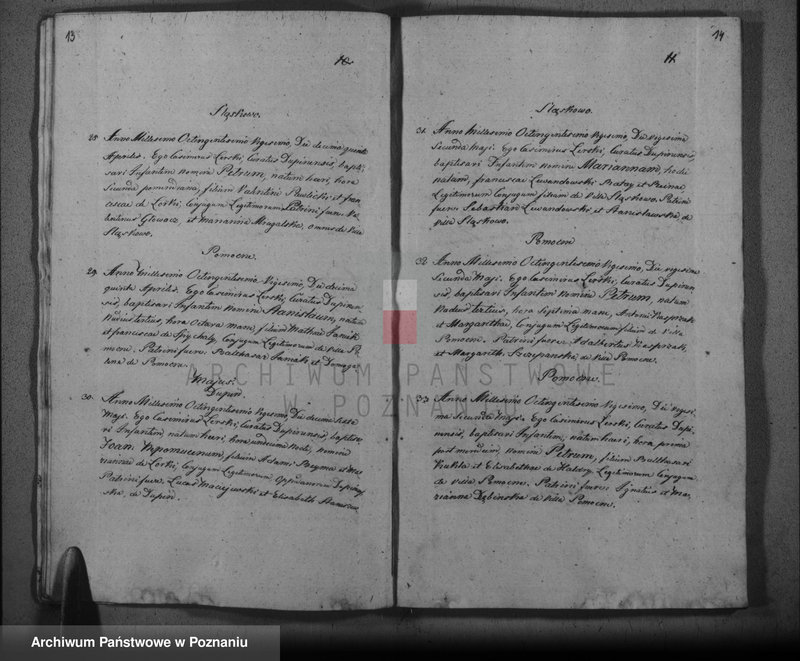 13
10
Sląskowo.
28 Anno Millesimo Octingentesimo Vigesimo, Die decima quinta
Aprilis. Ego Casimirus Lerski, Curatus Dupinensis, bapti
savi Infantem nomine Petrum, natum heri, hora
Secunda pomeridiana, filium Valentini et Fran
ciscae de Conjugum Legitimorum Patrini fuere Va
lentinus Glowacz, et Marianna omnes de villa
Sląskowo.
Pomocno.
29. Anno Millesimo Octingentesimo Vigesimo, Die decima
quinta Aprilis. Ego Casimirus Lerski, Curatus Dupinen
sis, baptisavi Infantem nomine Stanislaum, natum
nudius tertius, hora Octava mane, filium Mathiae
et Franciscae de Conjugum Legitimorum de villa Po
mocno. Patrini fuere Balthasar et
de Pomocno.
Majus.
Dupin.
30. Anno Millesimo Octingentesimo Vigesimo, Die decima sexta
Maji. Ego Casimirus Lerski, Curatus Dupinensis, baptisa
vi Infantem natum heri, hora undecima nocte, nomine
Joan. Nepomucenum, filium Adami et Ma
riannae de Conjugum Legitimorum
Patrini fuere Lucas Maciejewski et Elisabeth
de Dupin.
14
11
Sląskowo.
31. Anno Millesimo Octingentesimo Vigesimo, Die vigesima
Secunda Maji. Ego Casimirus Lerski, Curatus Dupinensis,
baptisavi Infantem nomine Mariannam, hodie
natam, Francisci Lewandowski et
Legitimorum Conjugum filiam de villa Sląskowo. Patrini
fuere Sebastian Lewandowski, et de
villa Sląskowo.
Pomocno
32. Anno Millesimo Octingentesimo Vigesimo, Die vigesima
Secunda Maji. Ego Casimirus Lerski, Curatus Dupinen
sis, baptisavi Infantem nomine Petrum, natum
nudius tertius, hora Septima mane, Antonii Kasprzak
et Margarithae, Conjugum Legitimorum filium de villa
Pomocno. Patrini fuere Adalbertus Kasprzak,
et Margarith. Szczepanska de villa Pomocno.
Pomocno.
33 Anno Millesimo Octingentesimo Vigesimo, Die vigesi
ma Secunda Maji. Ego Casimirus Lerski, Curatus Dupi
nensis, baptisavi Infantem, natum heri, hora prima
post meridiem, nomine Petrum, filium Balthasari
Kukla et Elisabethae de Legitimorum Conjugum
de villa Pomocno. Patrini fuere Ignatius et Ma
rianna Dębinska de villa Pomocno.
ARCHIWUM PAŃSTWOWE
W POZNANIU
Archiwum Państwowe w Poznaniu